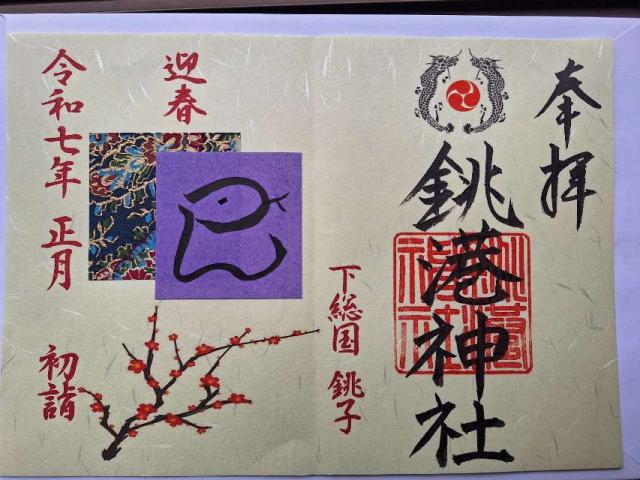 奉拝
銚港神社
下総国 銚子
迎春
巳
令和七年 正月
初詣